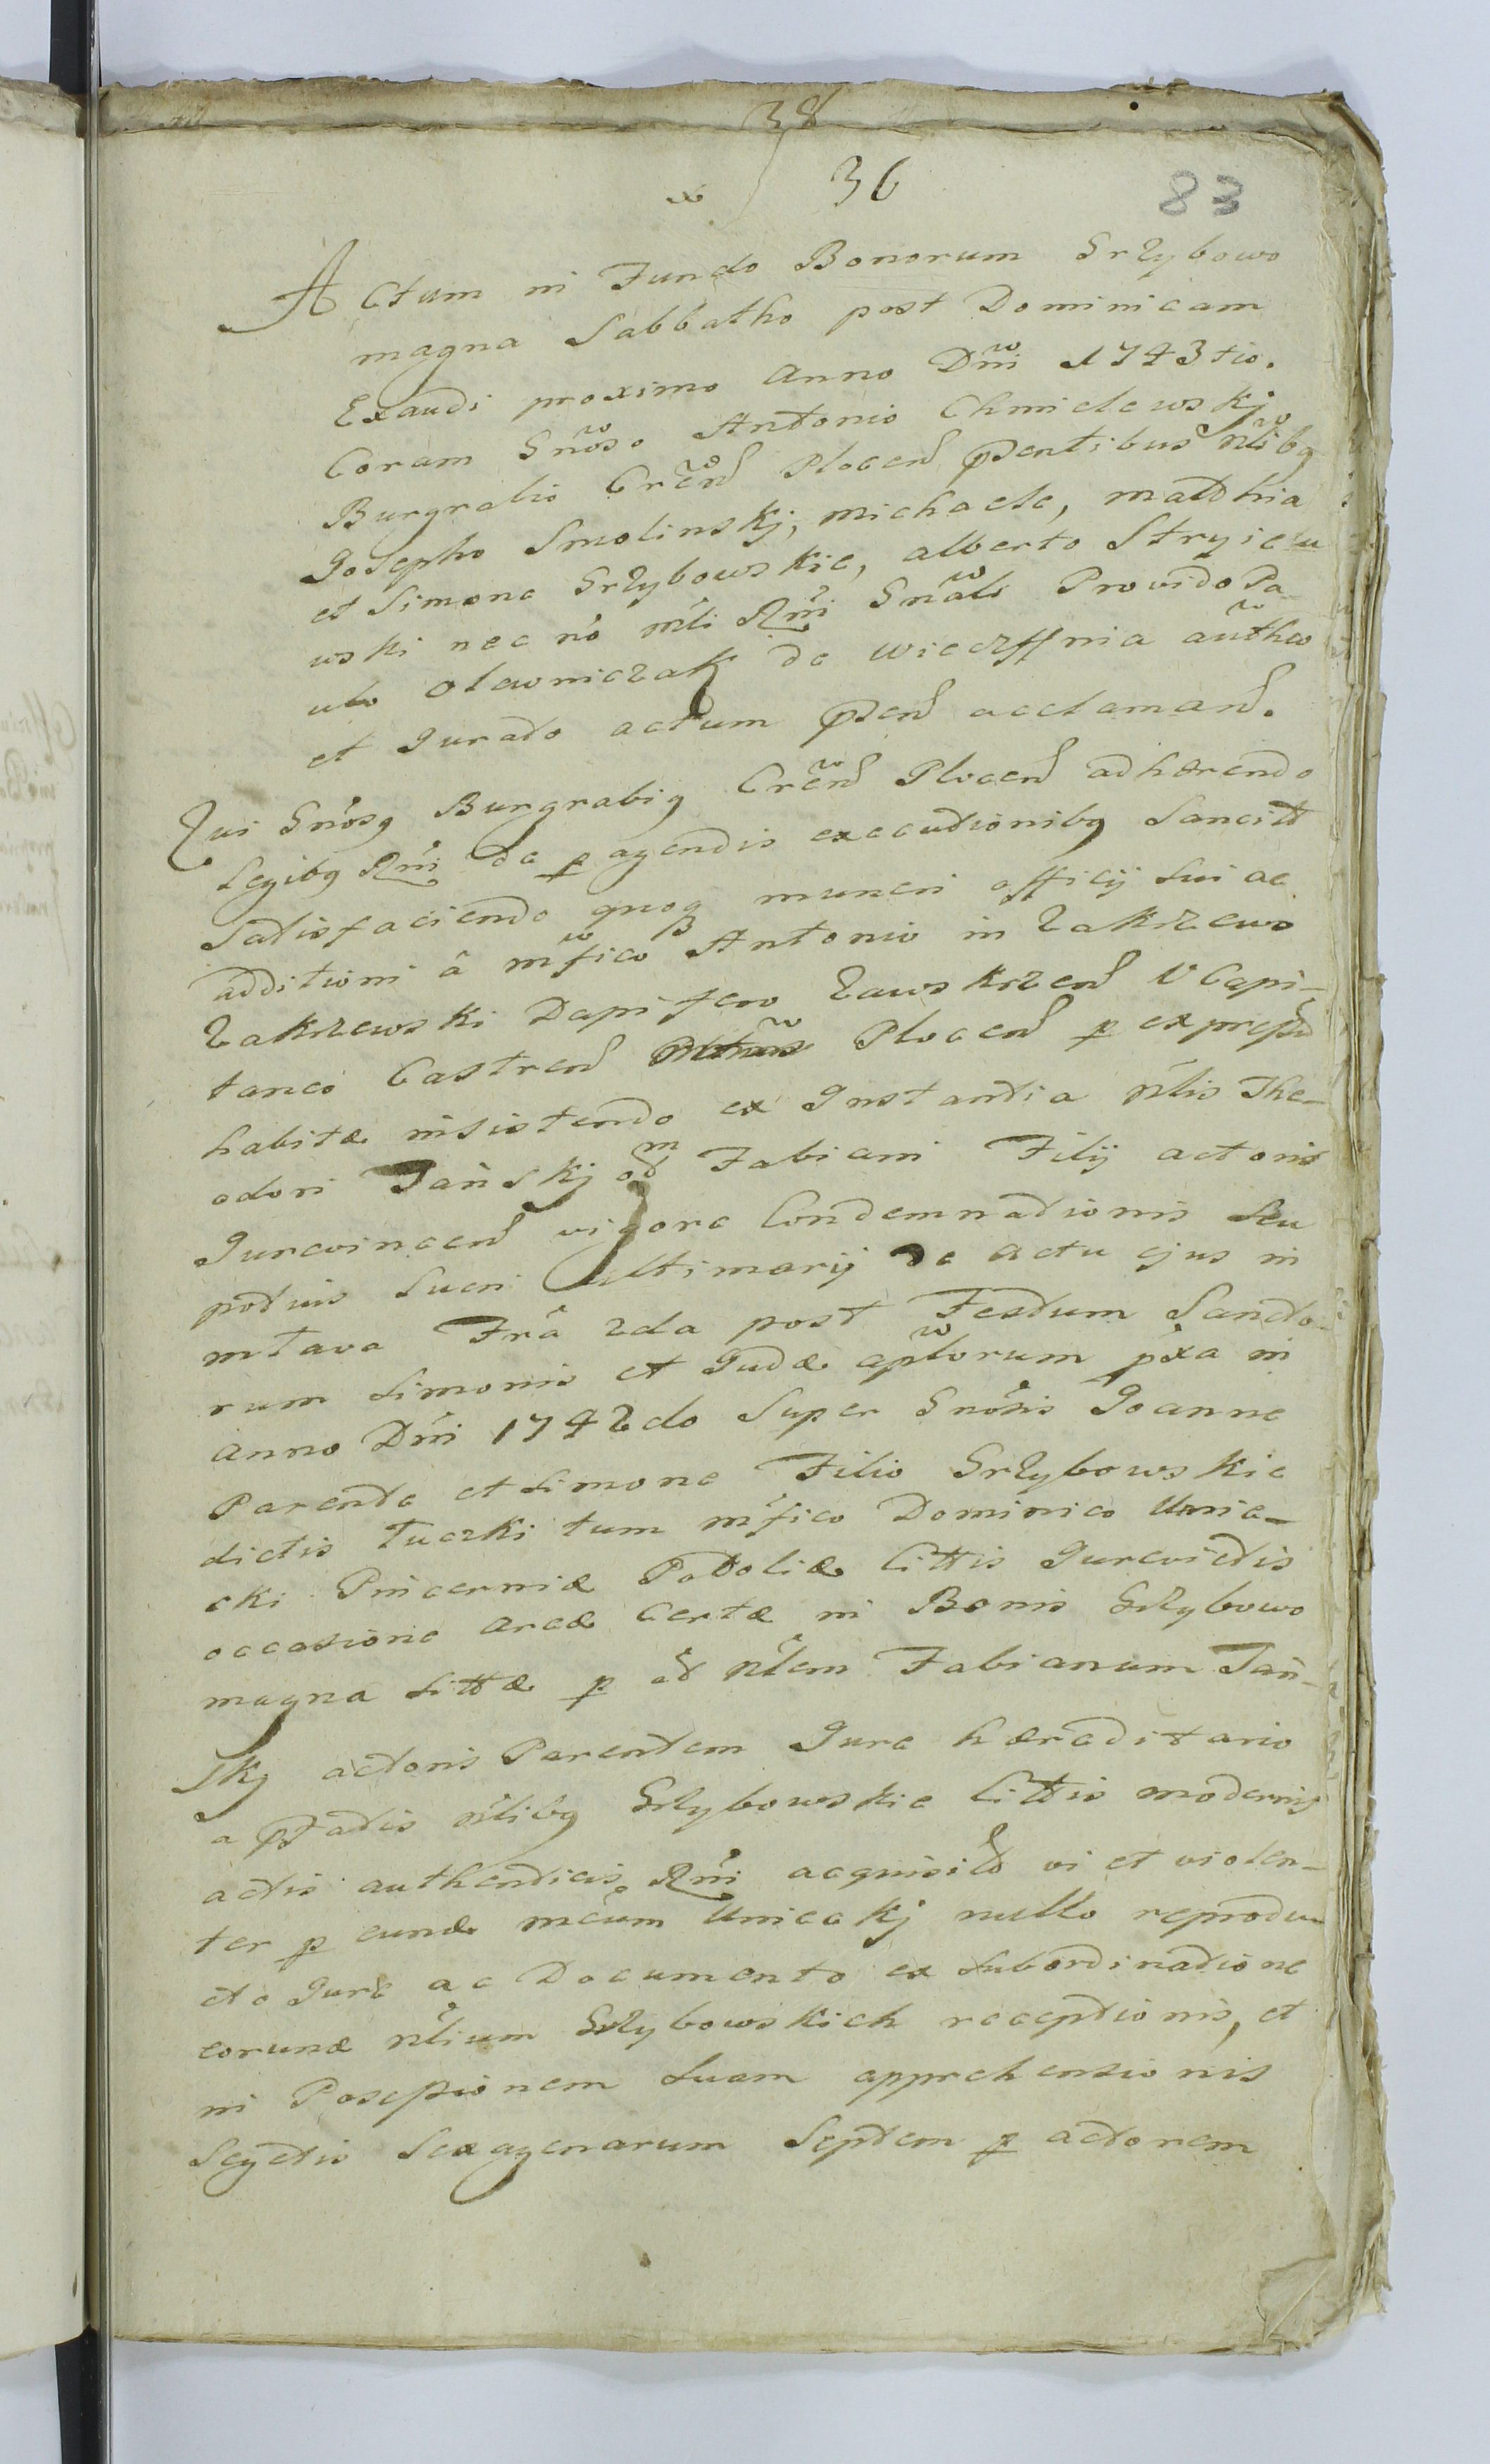 38
36
83
Actum in Fundo Bonorum Grzybowo
magna Sabbatho post Dominicam
Exaudi proximo Anno Dni 1743tio.
Coram Gnoso Antonio Chmielewskj
Burgrabio Cren Plocen psentibus nlibq
Josepho Smolinskj, Michaele, Matthia
et Simone Grzybowskie, Alberto Stryieu
wski nec no mli Rni Gnali Provido Pa
ulo Olewniczak de Wieczffnia autheo
et Jurato actum psen acclaman.
Qui Gnosq Burgrabiq Cren Plocen adhærendo
Legibq Rni de p agendis executionibq Sancitt
Satisfaciendo quoq muneri officij sui ac
additioni â mfico Antonio in Zakrzewo
Zakrzewski Dapifero Zawskrzen V Capi-
taneo Castren Plocen p expressu
habitæ insistendo ex Instantia nlis The-
odori Jańskj od Fabiani Filij actoris
Jurevincen vigore Condemnationis seu
potius Lucri Ultimarij de actu ejus in
mlava Fra 2da post Festum Sancto-
rum Simonis et Judæ aplorum pxa in
anno Dni 1742do super Gnosis Joanne
Parente et Simone Filio Grzybowskie
dictis Tuczki tum mfico Dominico Unie-
cki Pincerniæ Podoliæ Cittis Jurevictis
occasione areæ certæ in Bonis Grzybowo
magna sittæ p od nlem Fabianum Jań-
skj actoris Parentem Jure hæreditario
a pfatis nlibq Grzybowskie Cittis modernis
actis authenticis Rni acquisit vi et violen-
ter p eund mcum Unieckj nullo reprodu-
cto Jure ac Documento ex subordinatione
eorund nlium Grzybowskich receptionis, et
in Posessionem suam apprehensionis
Sectis Sexagenarum Septem p actorem